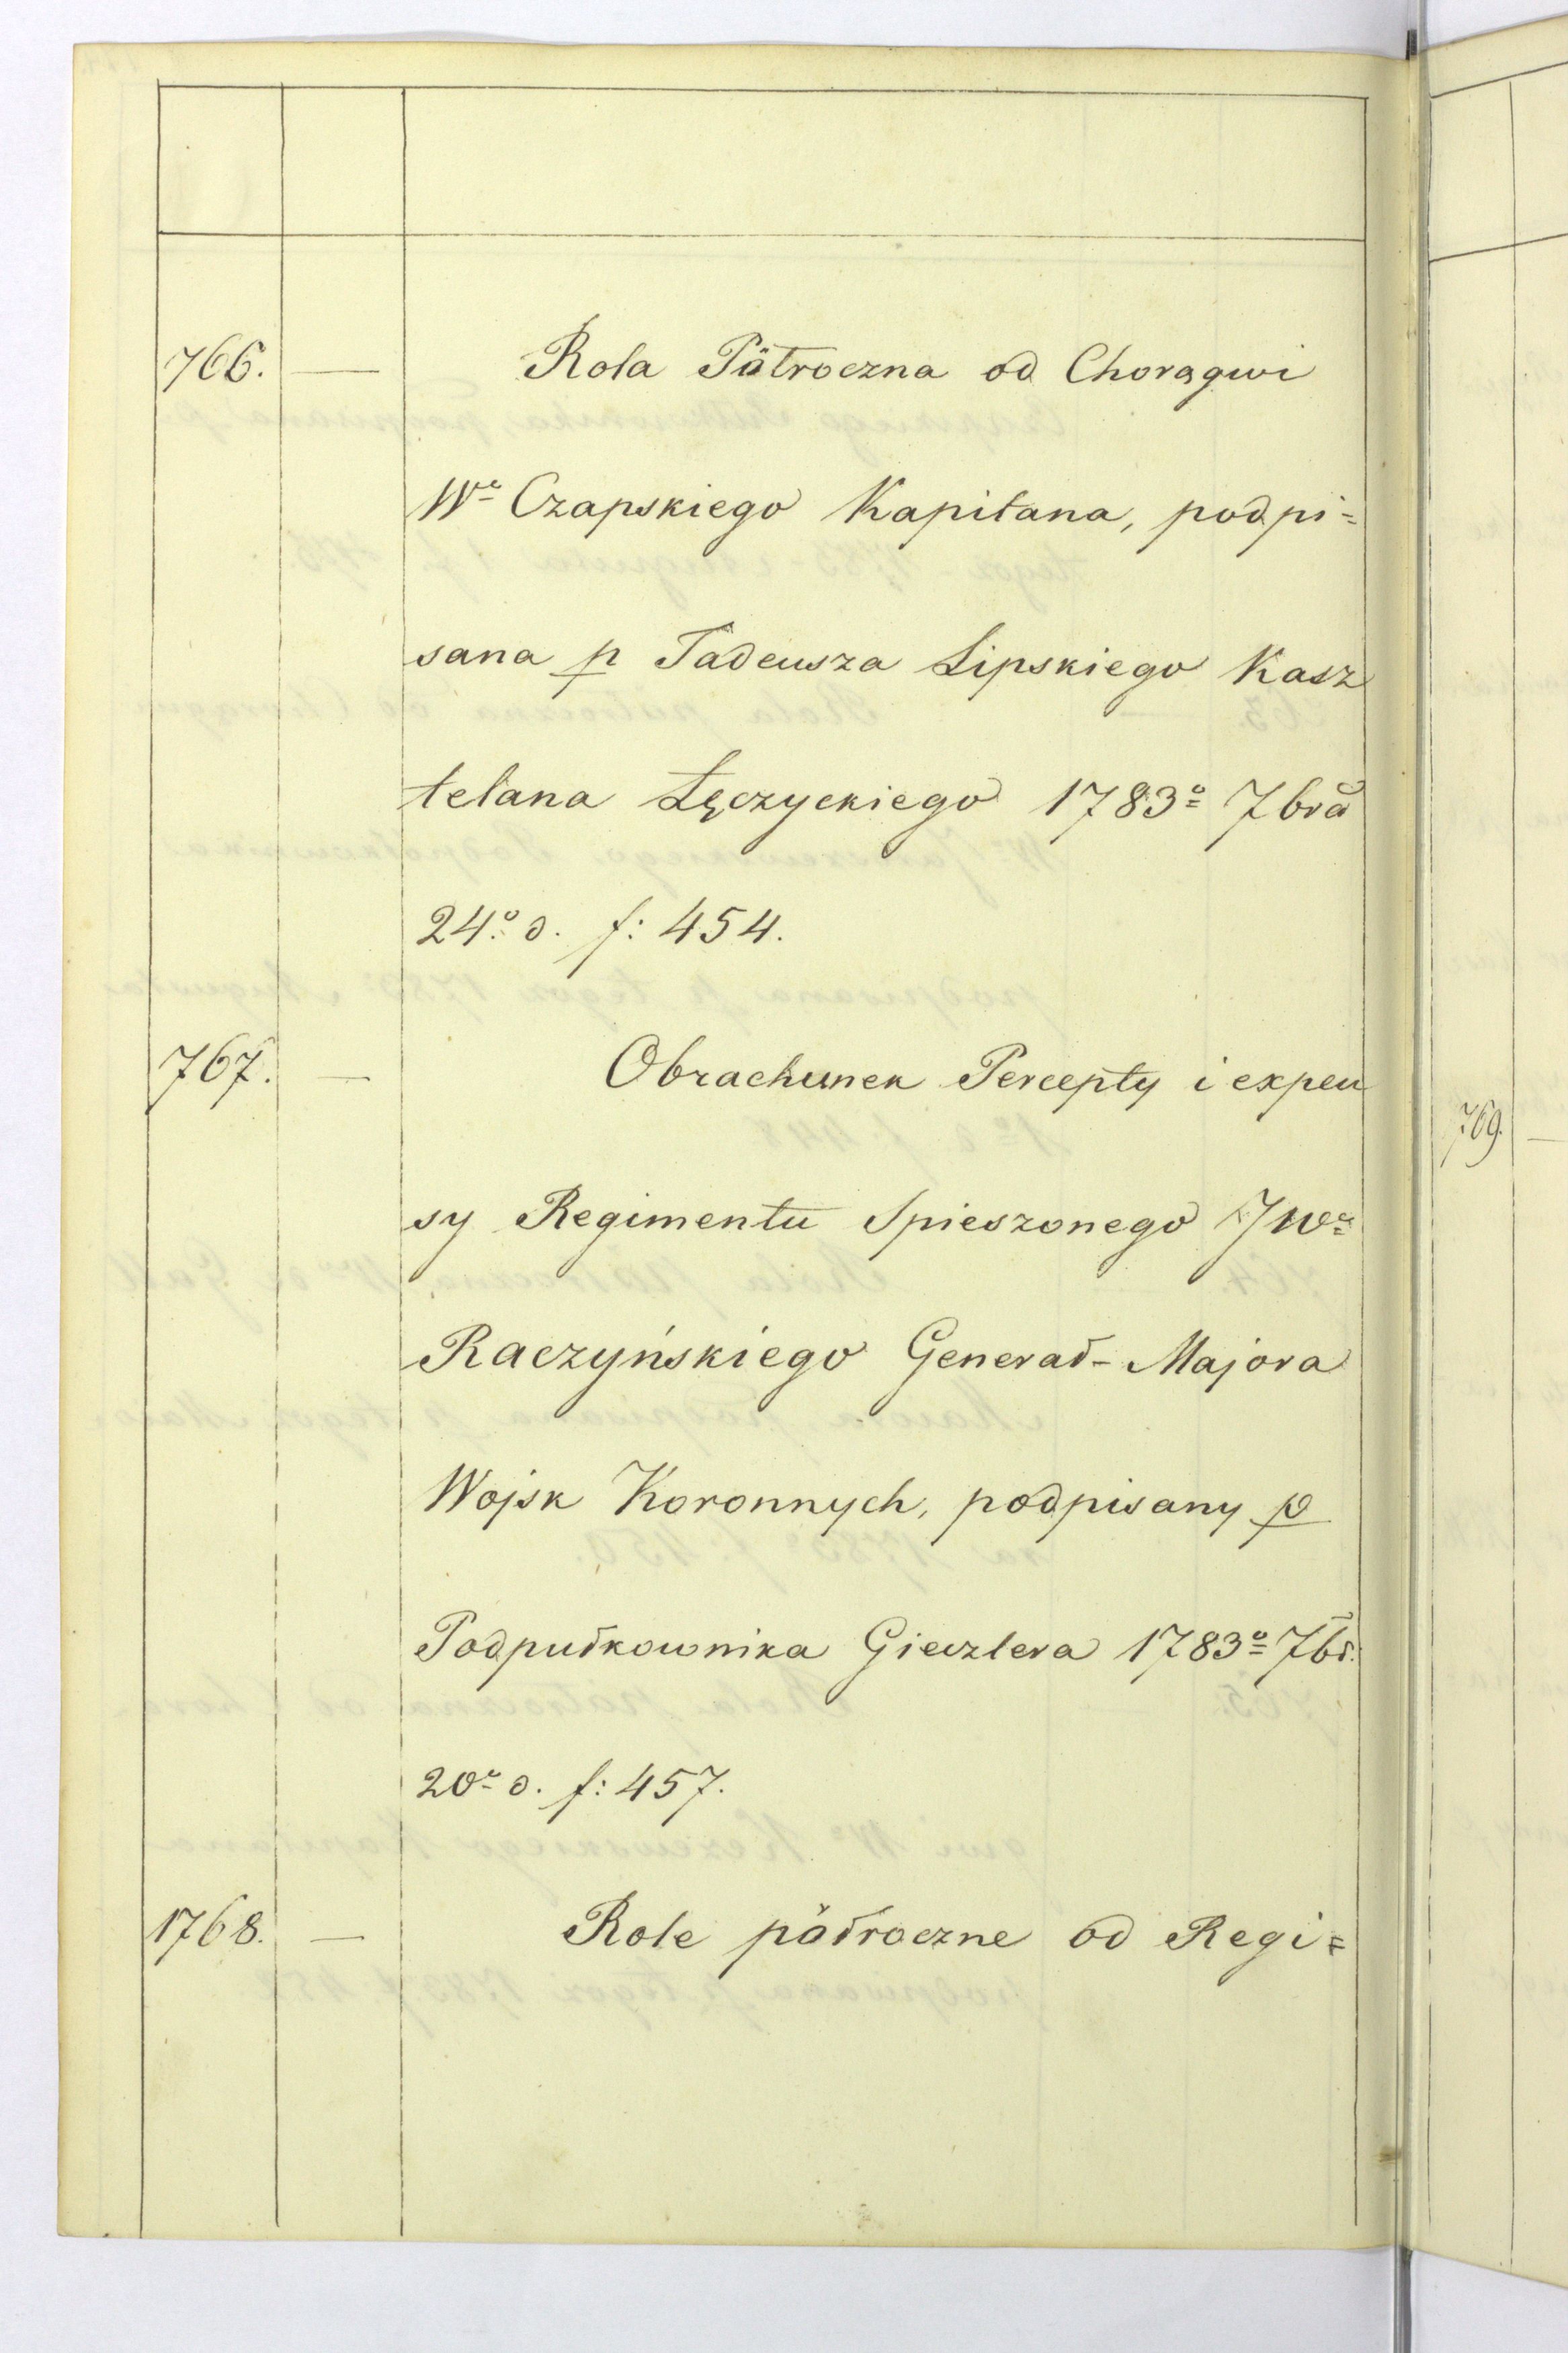 766. — Rola Pôłroczna od Chorągwi
Wº Czapskiego Kapitana, podpi=
sana p Tadeusza Lipskiego Kasz
telana Łęczyckiego 1783º 7bra
24º d. f: 454.
767. — Obrachunek Percepty i expen
sy Regimentu Spieszonego JWº
Raczyńskiego Generał-Majora
Wojsk Koronnych, podpisany p
Podpułkownika Gieszlera 1783º 7br.
20º d. f: 457.
768. — Role pôłroczne od Regi=
769. —